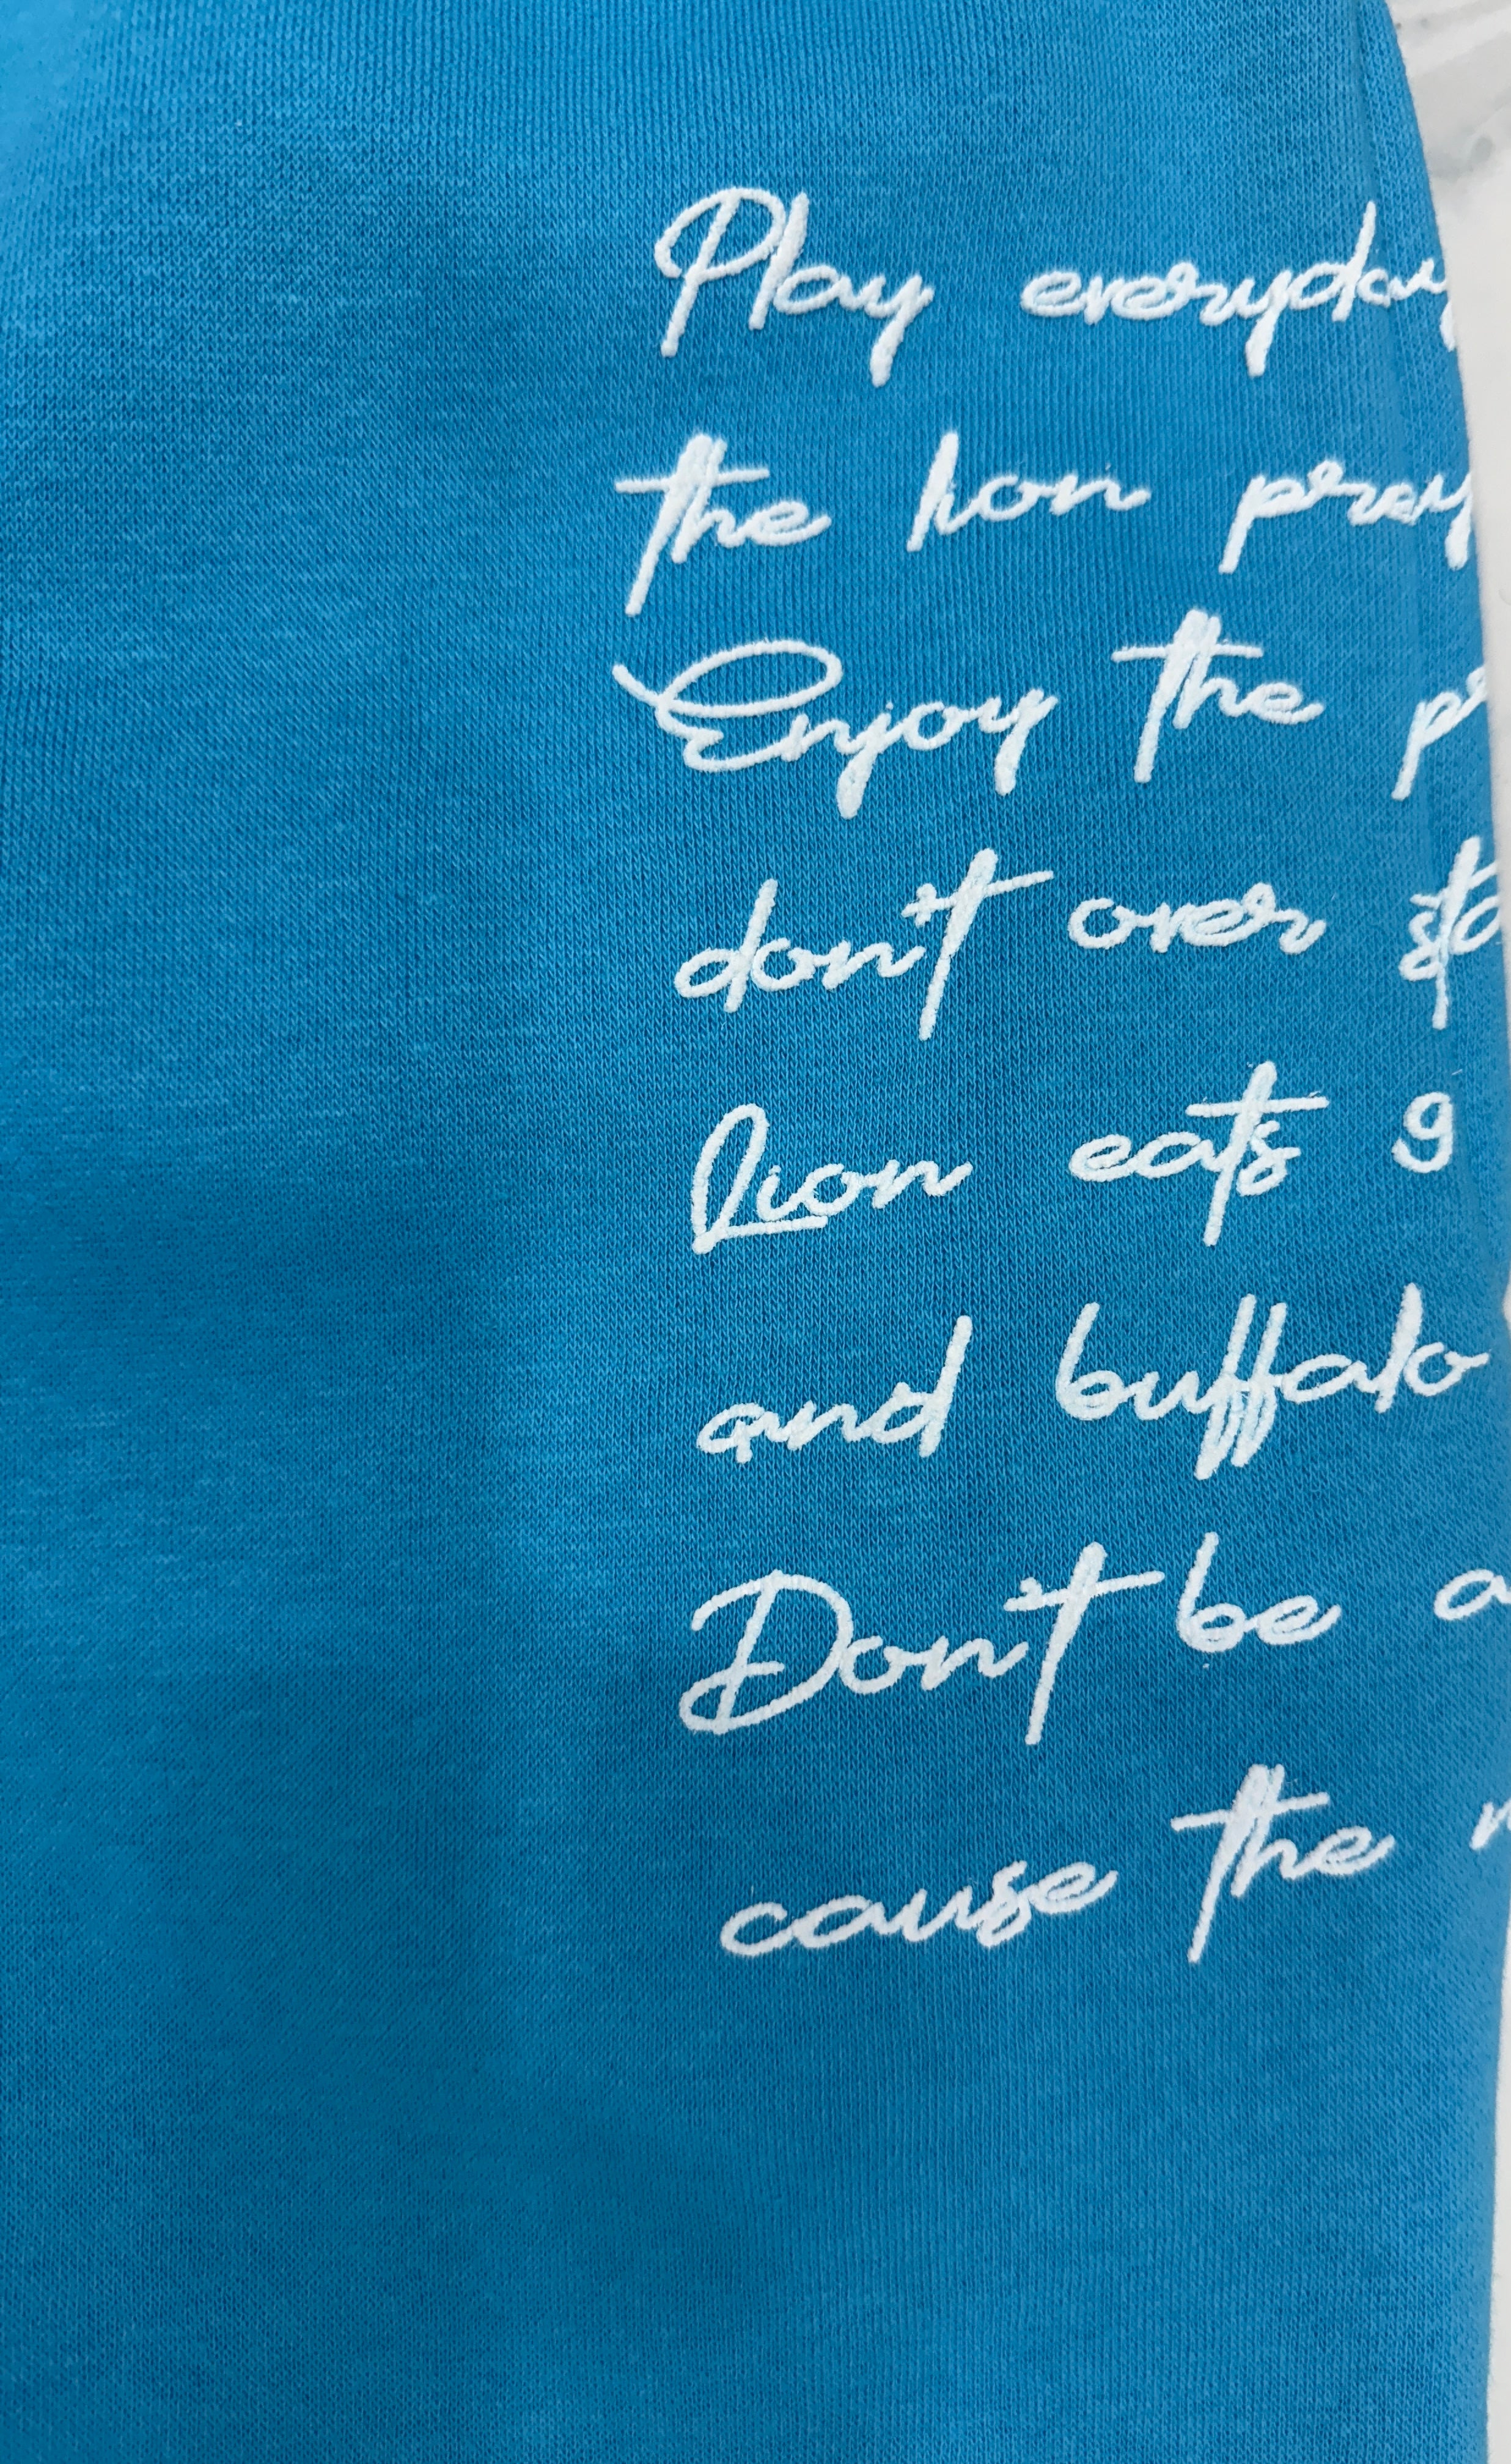 Play everyday
the lion pray
Enjoy the
don't over
Lion eats 9
and buffalo
Don't be a
cause the